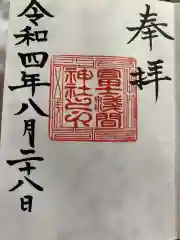 奉拝
冨浅間
神社之印
令和四年八月二十八日